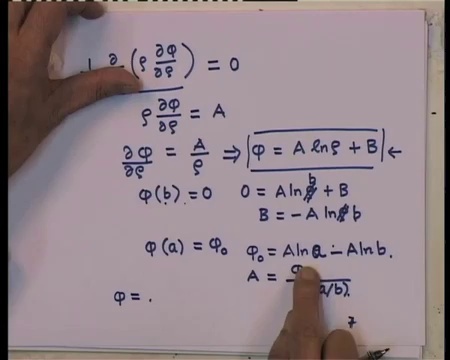 1 ∂ (ρ ∂φ/∂ρ) = 0
ρ ∂φ/∂ρ = A
∂φ/∂ρ = A/ρ ⇒ φ = A ln ρ + B ←
φ(b) = 0 0 = A ln b + B
B = - A ln b
φ(a) = φ₀ φ₀ = A ln a - A ln b.
A = a/b).
φ = .
7